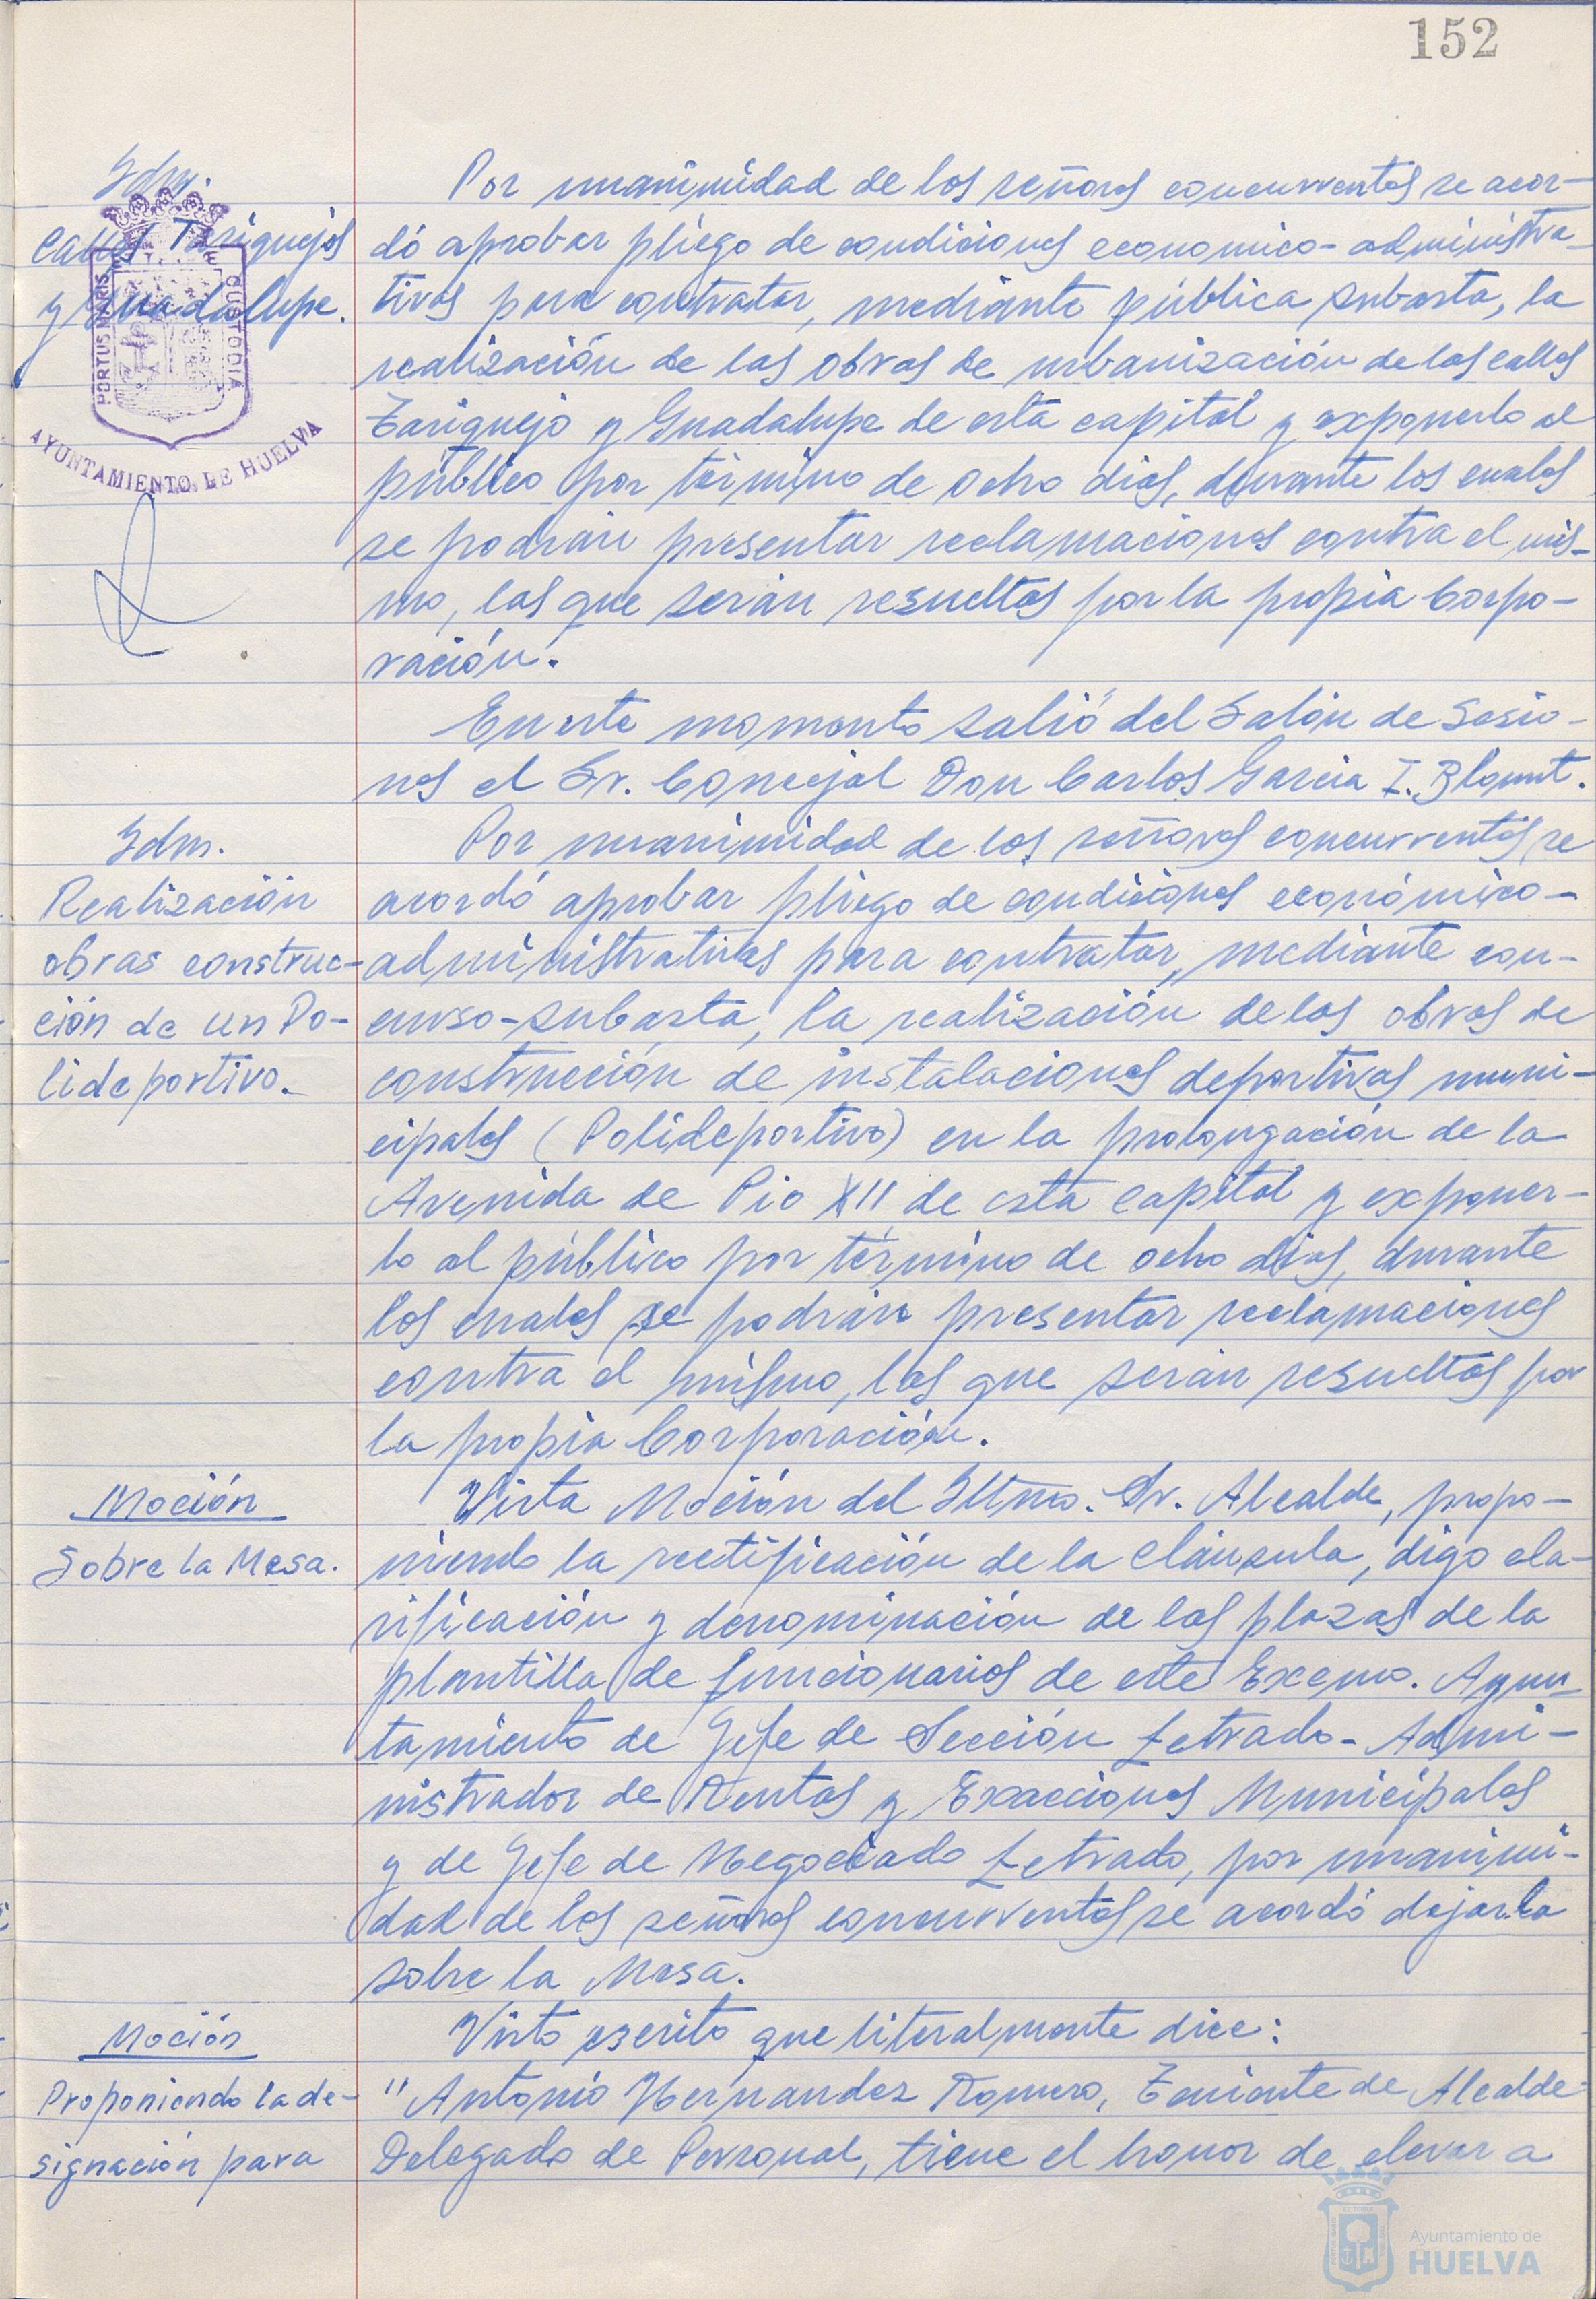 152
Idm.
Calles Tariquejos
y Guadalupe.
PORTUS MARIS
CUSTODIA
AYUNTAMIENTO DE HUELVA
Por unanimidad de los señores concurrentes se acor-
dó aprobar pliego de condiciones economico-administra-
tivas para contratar, mediante pública subasta, la
realización de las obras de urbanización de las calles
Tariquejo y Guadalupe de esta capital y exponerlo al
público por término de ocho dias, durante los cuales
se podrán presentar reclamaciones contra el mis-
mo, las que serán resueltas por la propia Corpo-
ración.
En este momento salió del Salón de Sesio-
nes el Sr. Concejal Don Carlos Garcia I. Blount.
Idm.
Realización
obras construc-
ción de un Po-
lideportivo.
Por unanimidad de los señores concurrentes se
acordó aprobar pliego de condiciones económico-
administrativas para contratar, mediante con-
curso-subasta, la realización de las obras de
construcción de instalaciones deportivas muni-
cipales (Polideportivo) en la prolongación de la
Avenida de Pio XII de esta capital y exponer-
lo al público por término de ocho dias, durante
los cuales se podrán presentar reclamaciones
contra el mismo, las que serán resueltas por
la propia Corporación.
Moción
Sobre la Mesa.
Vista Moción del Iltmo. Sr. Alcalde, propo-
niendo la rectificación de la cláusula, digo cla-
rificación y denominación de las plazas de la
plantilla de funcionarios de este Excmo. Ayun-
tamiento de Jefe de Sección Letrado-Admi-
nistrador de Rentas y Exacciones Municipales
y de Jefe de Negociado Letrado, por unanimi-
dad de los señores concurrentes se acordó dejarla
sobre la Mesa.
Moción
Proponiendo la de-
signación para
Visto escrito que literalmente dice:
"Antonio Hernandez Romero, Teniente de Alcalde
Delegado de Personal, tiene el honor de elevar a
Ayuntamiento de
HUELVA